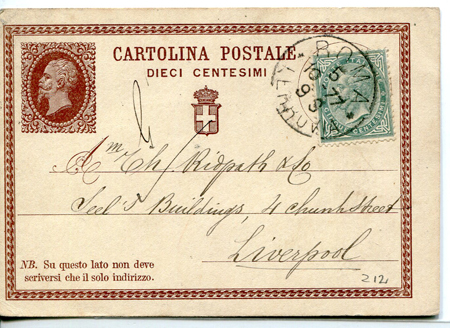 CARTOLINA POSTALE
DIECI CENTESIMI
ROMA
5-17
10 93
Ridpath & Co
Seel's Buildings, 4 Church Street
Liverpool
NB. Su questo lato non deve
scriversi che il solo indirizzo.
212